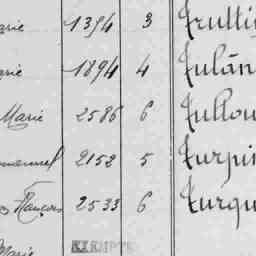 arie 1394 3 Trutti
arie 1894 4 Tulān
Marie 2586 6 Tullou
manuel 2152 5 Turpi
François 2533 6 Turqu
Marie